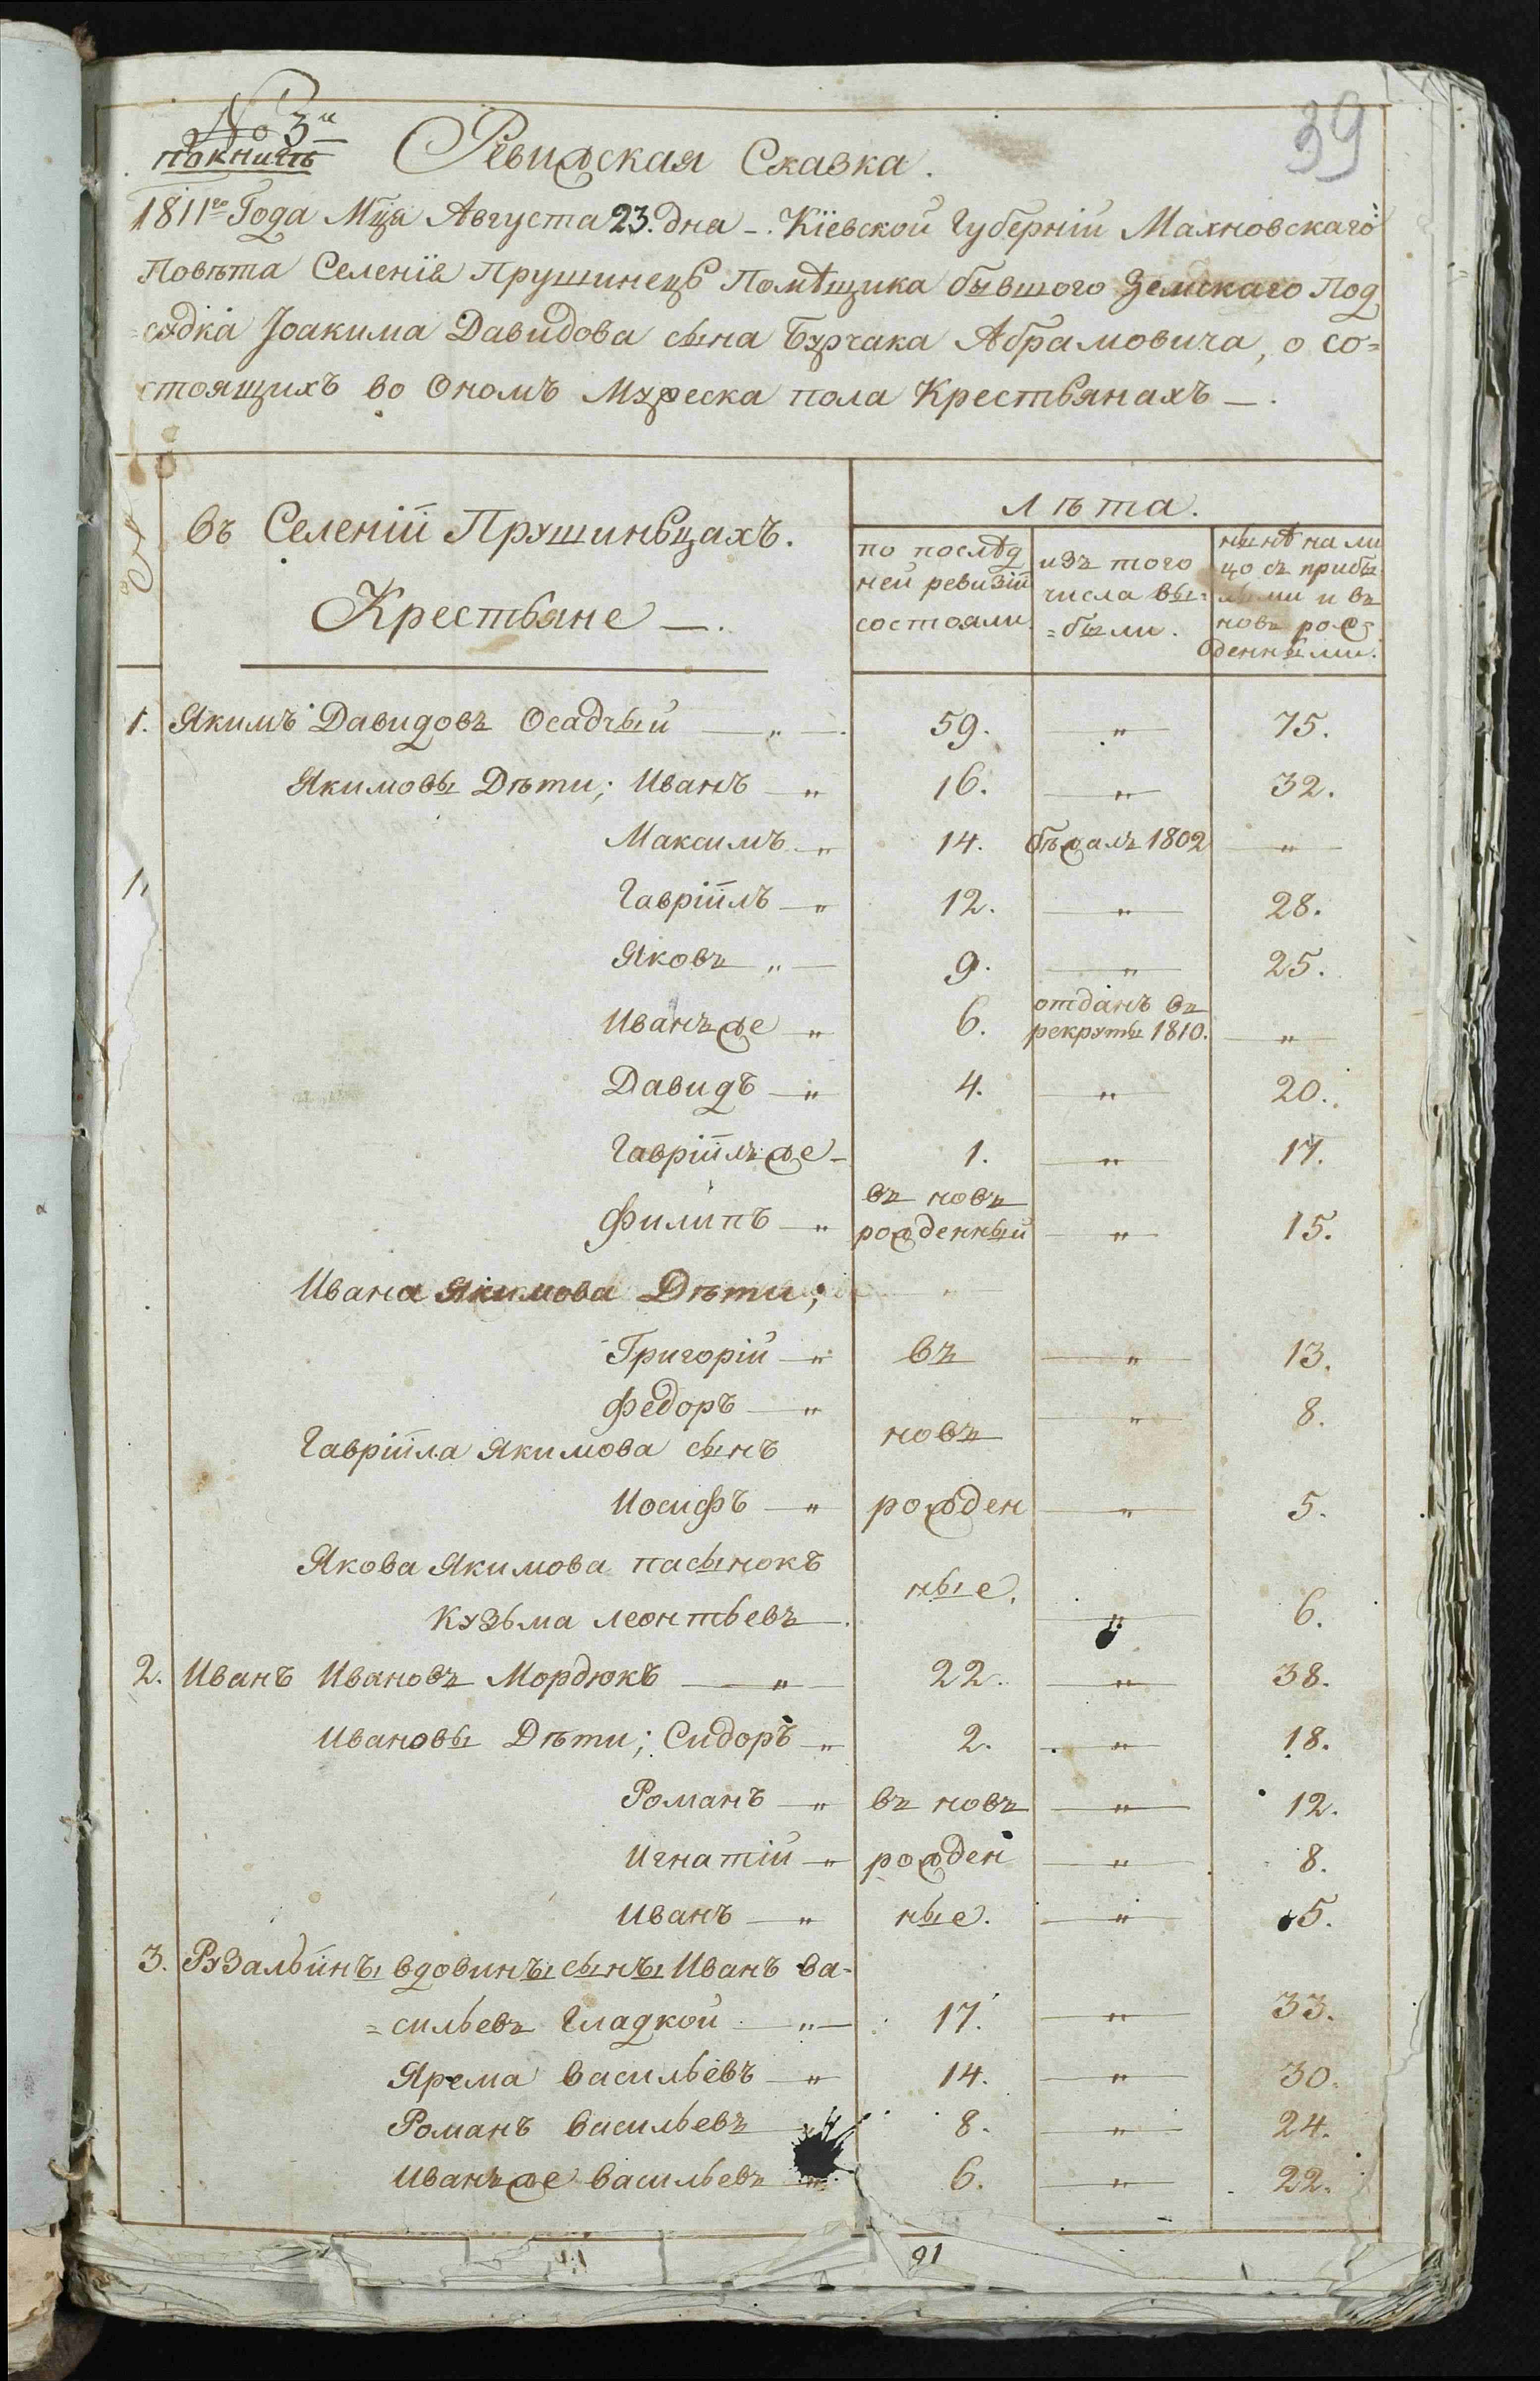 № 3й
39
Ревижская Сказка.
1811го Года Мца Августа 23. дня -. Кіевской Губерніи Махновскаго
Повѣта Селенія Прушинецъ Помѣщика бывшого Земскаго Под
=судка Іоакима Давидова сына Бурчака Абрамовича, о со=
стоящихъ во Ономъ Мужеска пола Крестьянахъ —.
Въ Селеніи Прушиньцахъ.
Крестьяне —.
Лѣта.
по послѣд
ней ревизіи
состояли.
изъ того
числа вы=
=были.
нынѣ на ли
цо съ прибы
лыми и въ
новъ рож
денными.
1. Якимъ Давидовъ Осадчый — „ — 59. „ 75.
Якимовы Дѣти; Иванъ „ 16. „ 32.
Максимъ „ 14. бѣжалъ 1802 „
1,
Гавріилъ „ 12. „ 28.
Яковъ „ 9. „ 25.
Иванъ же „ 6. отданъ въ рекруты 1810. „
Давидъ „ 4. „ 20.
Гавріилъ же 1. „ 17.
Филипъ „ въ новъ рожденный „ 15.
Ивана Якимова Дѣти;
Григорій „ въ „ 13.
Федоръ „ новъ „ 8.
Гавріила Якимова сынъ
Иосифъ „ рожден „ 5.
Якова Якимова пасынокъ
Кузьма Леонтьевъ ные. „ 6.
2. Иванъ Ивановъ Мордюкъ „ 22. „ 38.
Ивановы Дѣти; Сидоръ „ 2. „ 18.
Романъ „ въ новъ „ 12.
Игнатій „ рожден „ 8.
Иванъ „ ные. „ 5.
3. Рузальины вдовины сыны Иванъ Ва-
=сильевъ Гладкой „ 17. „ 33.
Ярема Васильевъ „ 14. „ 30.
Романъ Васильевъ 8. „ 24.
Иванъ же Васильевъ „ 6. „ 22.
91